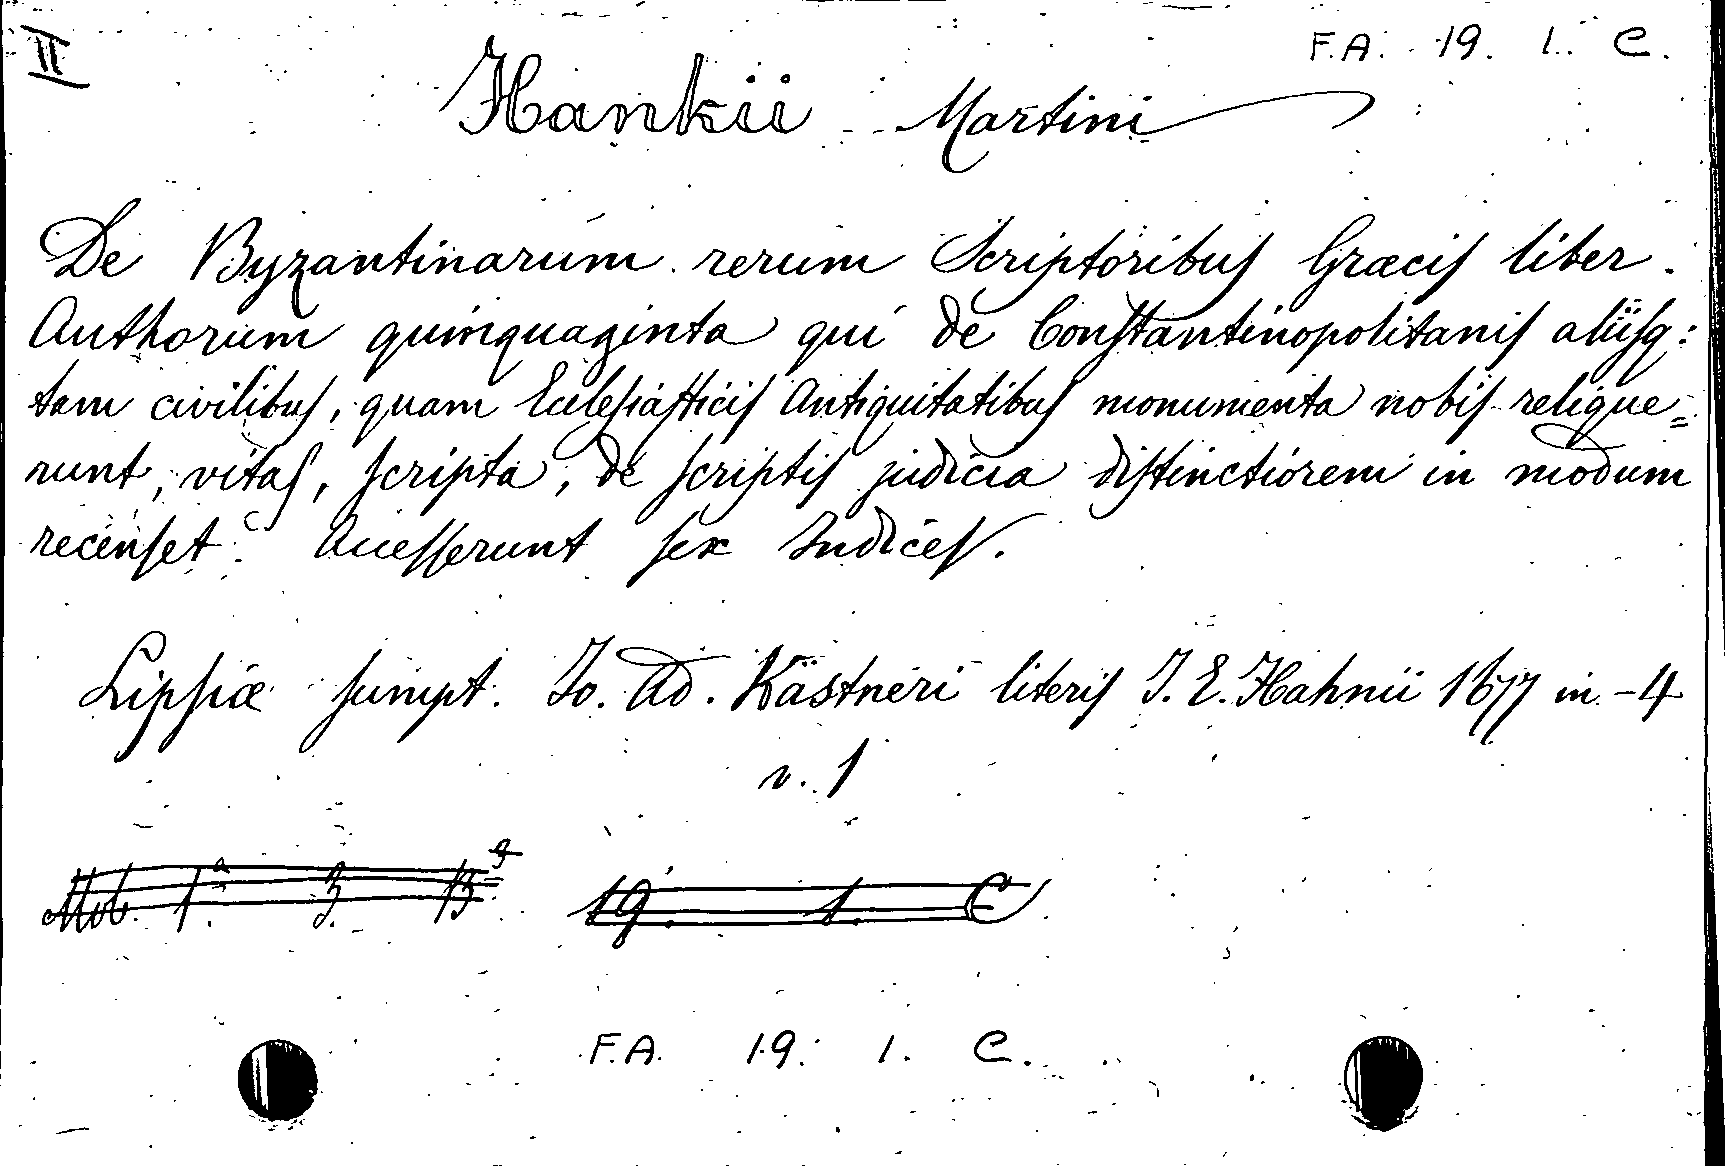 II
F.A. 19. 1. C.
Hankii Martini
De Byzantinarum rerum Scriptoribus Græcis liber.
Authorum quinquaginta qui de Constantinopolitanis aliisq:
tam civilibus, quam Ecclesiasticis Antiquitatibus monumenta nobis relique=
runt, vitas, scripta, de scriptis judicia distinctiorem in modum
recenset. Accesserunt sex Indices.
Lipsiæ sumpt. Jo. Ad. Kästneri literis J. E. Hahnii 1677 in-4
v. 1
Mob. 1.ª 3. B 9 19. 1. C
F.A. 19. 1. C.